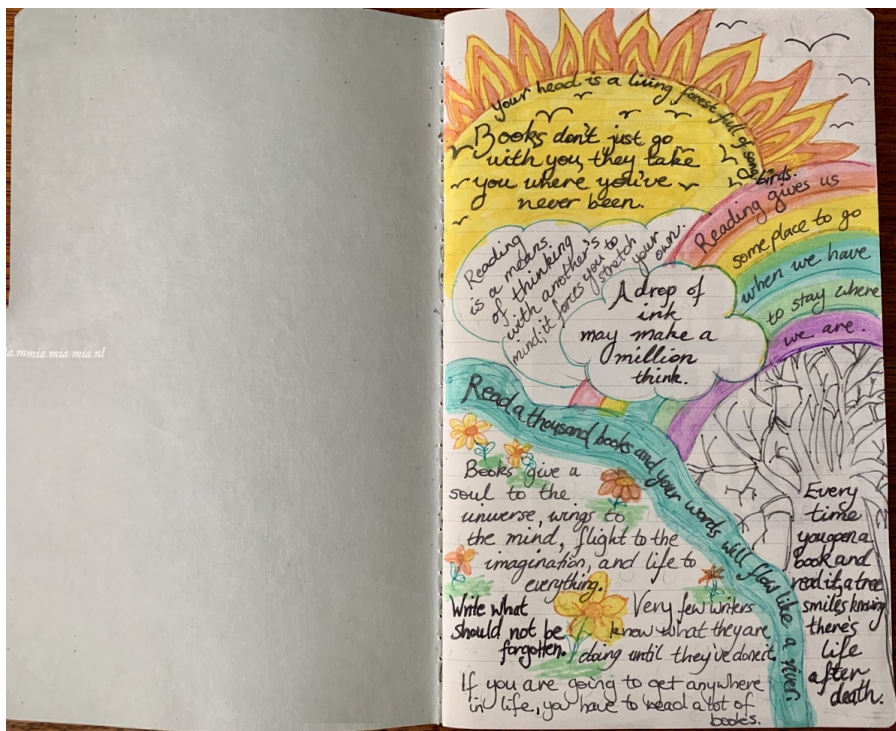 a.mmia.mia-mia.nl
your head is a living forest full of song birds.
Books don't just go
with you, they take
you where you've
never been.
Reading gives us
some place to go
when we have
to stay where
we are.
Reading
is a means
of thinking
with another's
mind; it forces you to
stretch
your
own.
A drop of
ink
may make a
million
think.
Read a thousand books and your words will flow like a river.
Books give a
soul to the
universe, wings to
the mind, flight to the
imagination, and life to
everything.
Every
time
you open a
book and
read it, a tree
smiles knowing
there's
life
after
death.
Write what
should not be
forgotten.
Very few writers
know what they are
doing until they've done it.
If you are going to get anywhere
in life, you have to read a lot of
books.